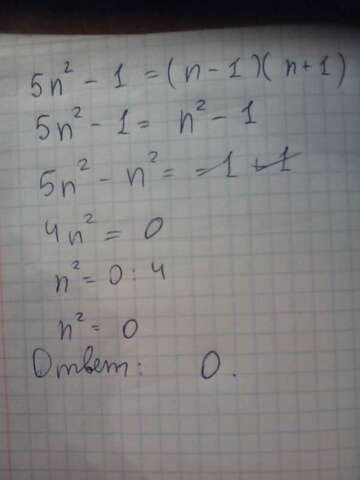 5n² - 1 = (n - 1)(n + 1)
5n² - 1 = n² - 1
5n² - n² = -1 + 1
4n² = 0
n² = 0 : 4
n² = 0
Ответ: 0.